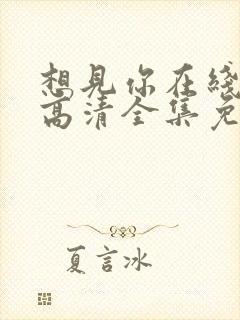 想見你在綫
高清全集免
夏言冰